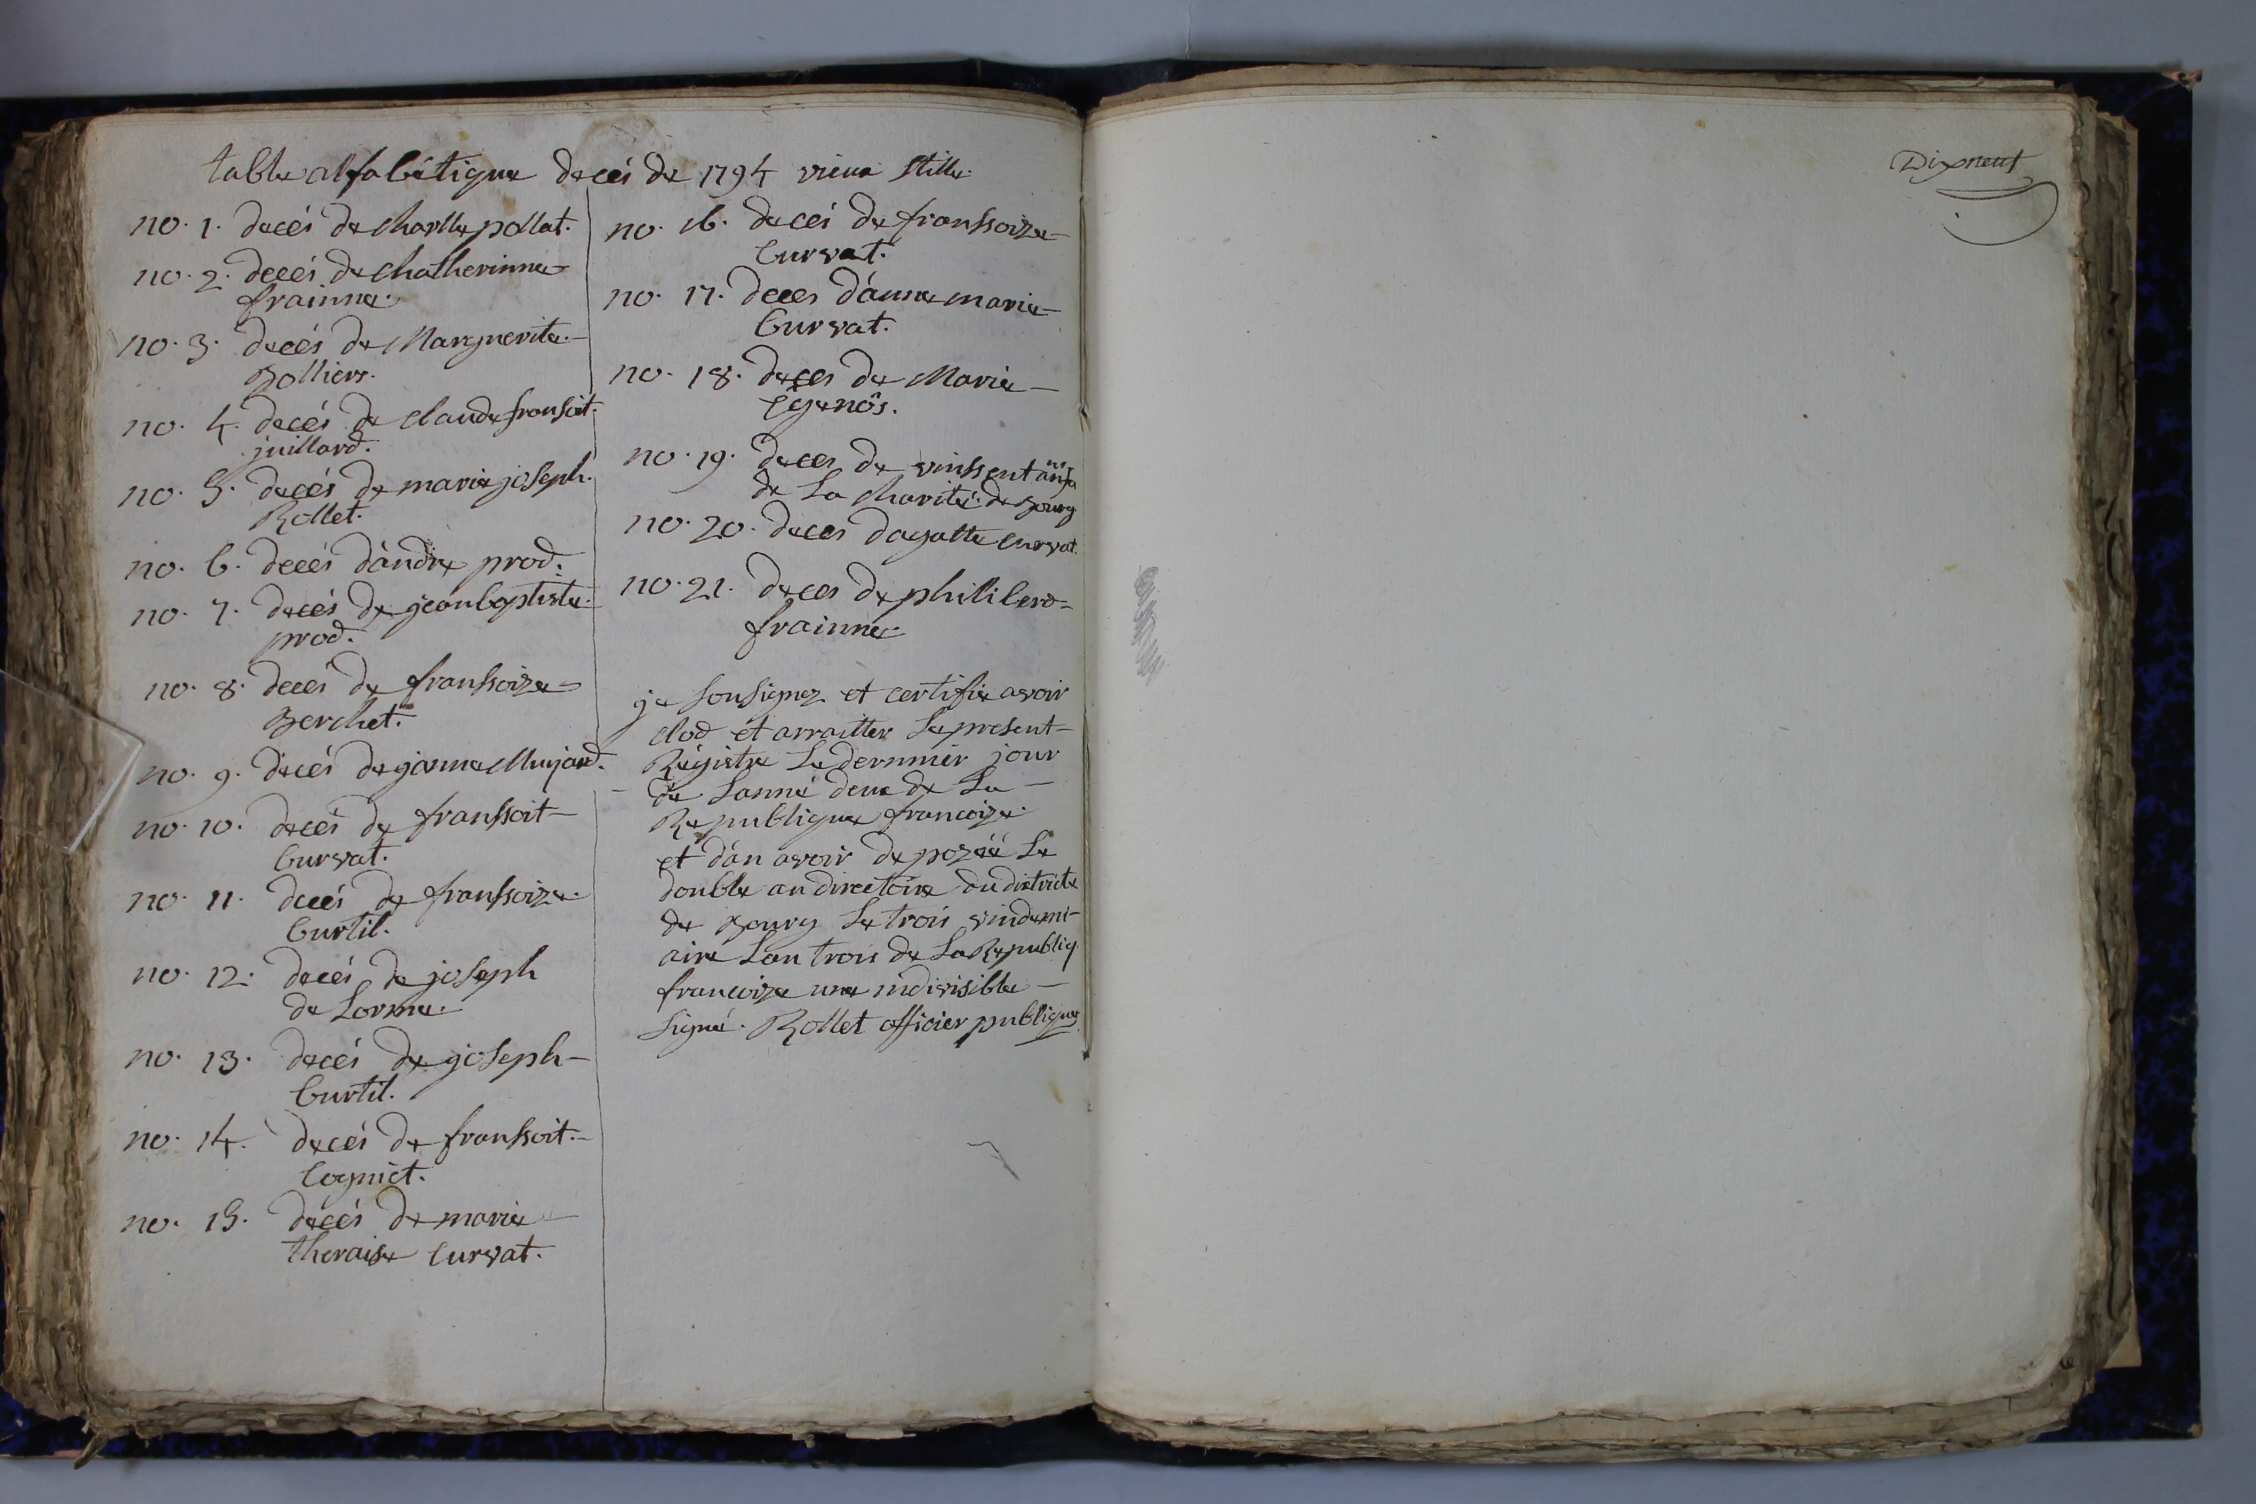 table alfabétique decés de 1794 vieux stille.
no. 1. decés de charlle pollat.
no. 2. decés de chatherinne
frainne.
no. 3. decés de Marguerite
Bolliers.
no. 4. decés de claude fransoit
juillard.
no. 5. decés de marie joseph
Rollet.
no. 6. decés d'andre prod.
no. 7. decés de jeanbaptiste
prod.
no. 8. decés de franssoize
Berchet.
no. 9. decés de janne
no. 10. decés de franssoit
Curvat.
no. 11. decés de franssoize
Curtil.
no. 12. decés de joseph
de Lorme.
no. 13. decés de joseph
Curtil.
no. 14. decés de franssoit
Cogniet.
no. 15. decés de marie
theraise Curvat.
no. 16. decés de franssoize
Curvat.
no. 17. deces d'anne marie
Curvat.
no. 18. deces de Marie
no. 19. deces de vinssent
de La charité de Bourg
no. 20. deces dagatte curvat.
no. 21. deces de philiberd
frainne.
je sousignez et certifie avoir
clod et arraitter Le present
Régistre Le dernmier jour
de Lanné deux de La
Republique francoize
et d'an avoir depozéé Le
double au directoire du districte
de Bourg Le trois vindemi-
aire Lan trois de La Republiq.
francoize une indivisible
signé. Rollet officier publique
Dixneuf